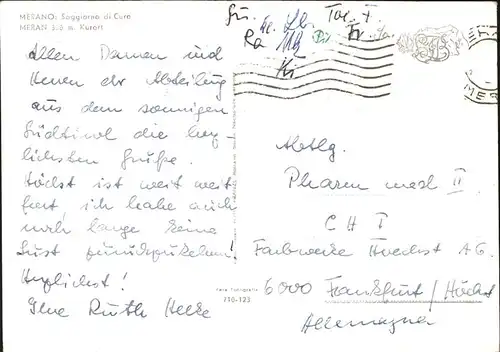 MERANO: Soggiorno di Cura
MERAN 326 m. Kurort
Allen Damen und
Herren der Abteilung
aus dem sonnigen
Südtirol die herz-
lichsten Grüße.
Höchst ist weit weit
fort, ich habe auch
noch lange keine
Lust zurückzukehren!
Herzlichst!
Ihre Ruth
Abtlg.
Pharm med II
CH I
Farbwerke Hoechst AG.
6000 Frankfurt/Höchst
Allemagne
Vera Fotografia
710-123